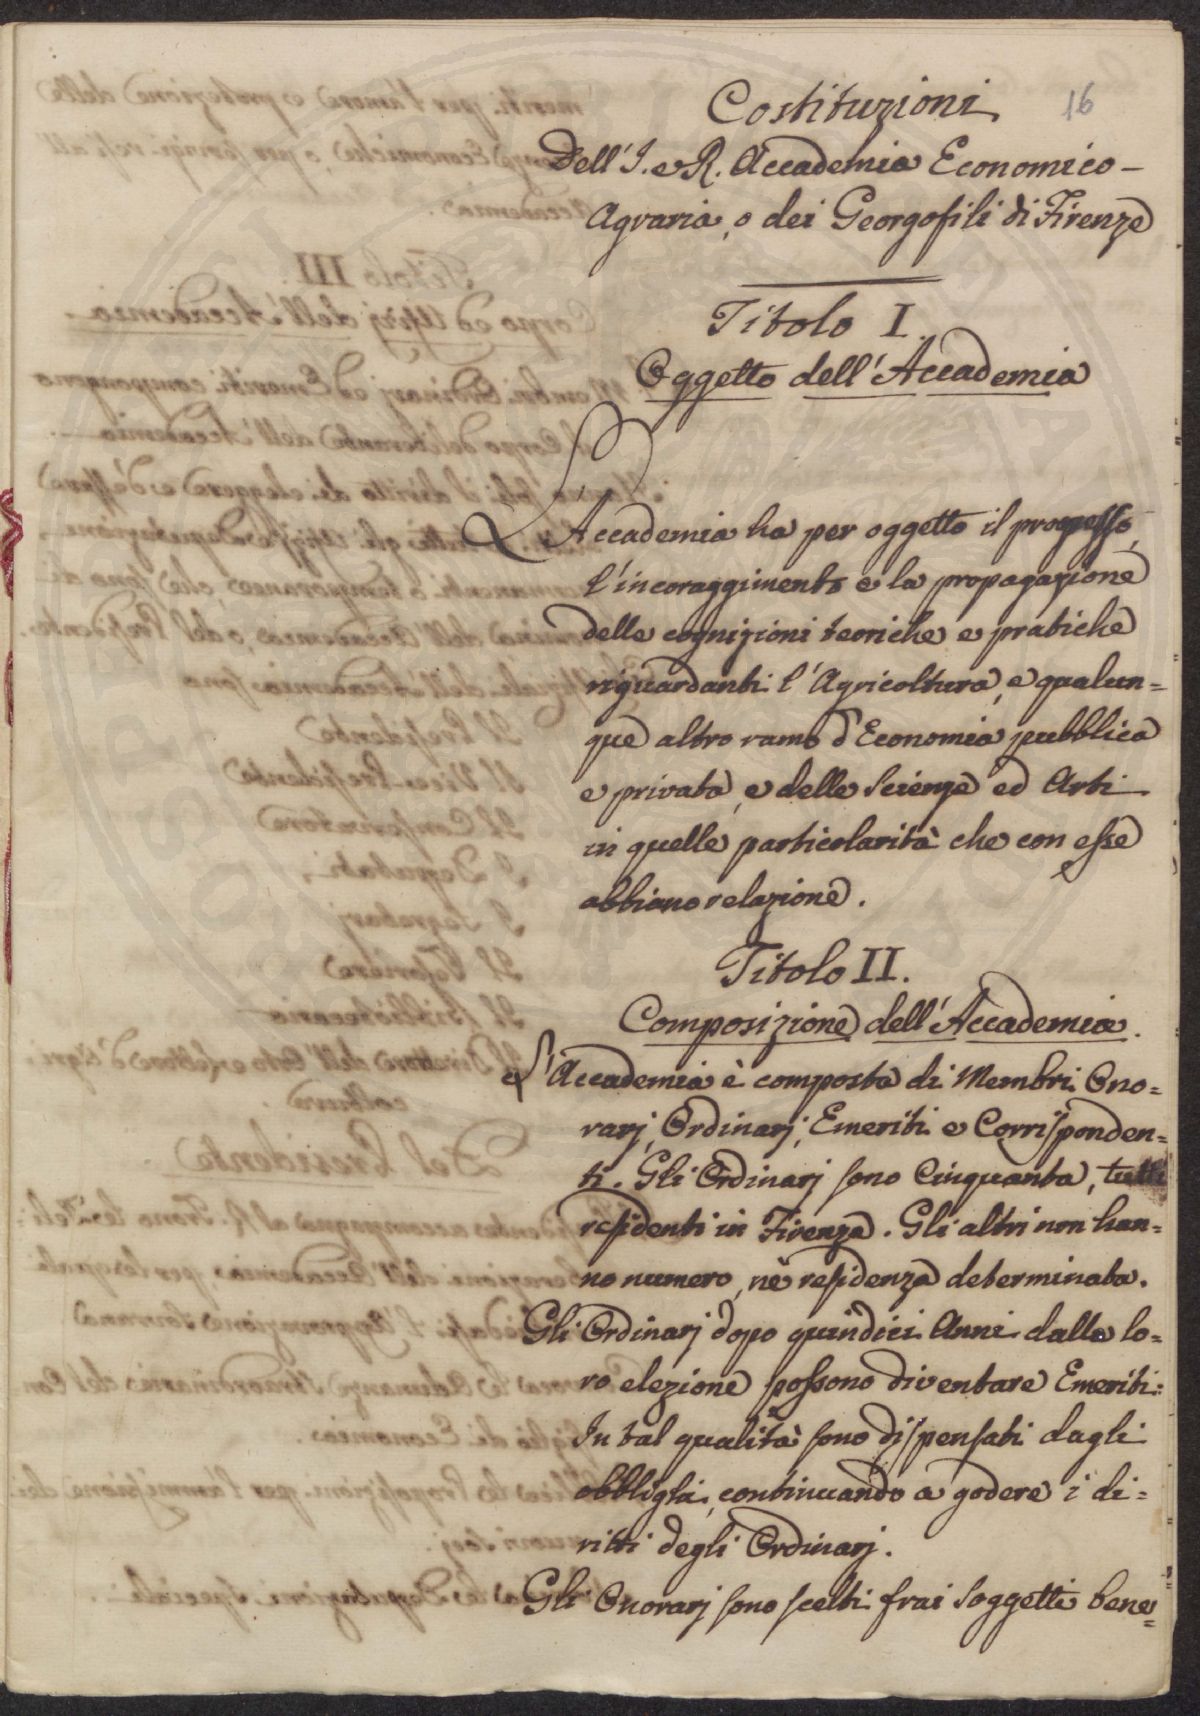 Costituzioni 16
Dell' I. e R. Accademia Economico-
Agraria, o dei Georgofili di Firenze
Titolo I.
Oggetto dell'Accademia
L'Accademia ha per oggetto il progresso,
l'incoraggimento e la propagazione
delle cognizioni teoriche e pratiche
riguardanti l'Agricoltura, e qualun=
que altro ramo d'Economia pubblica
e privata, e delle Scienze ed Arti
in quelle particolarità che con esse
abbiano relazione.
Titolo II.
Composizione dell'Accademia.
L'Accademia è composta di Membri Ono=
rarj, Ordinarj, Emeriti e Corrisponden=
ti. Gli Ordinarj sono Cinquanta, tutti
residenti in Firenze. Gli altri non han=
no numero, nè residenza determinata.
Gli Ordinarj dopo quindici Anni dalla lo=
ro elezione possono diventare Emeriti:
In tal qualità sono dispensati dagli
obblighi, continuando a godere i di=
ritti degli Ordinarj.
Gli Onorarj sono scelti frai Soggetti bene=